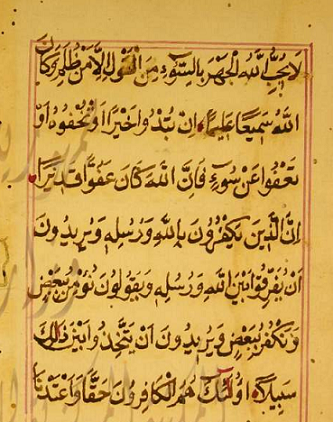 لَا يُحِبُّ اللّٰهُ الْجَهْرَ بِالسُّوٓءِ مِنَ الْقَوْلِ اِلَّا مَنْ ظُلِمَ وَكَانَ
اللّٰهُ سَمِيعًا عَلِيمًا اِنْ تُبْدُوا خَيْرًا اَوْ تُخْفُوهُ اَوْ
تَعْفُوا عَنْ سُوٓءٍ فَاِنَّ اللّٰهَ كَانَ عَفُوًّا قَدِيرًا
اِنَّ الَّذِينَ يَكْفُرُونَ بِاللّٰهِ وَرُسُلِهِ وَيُرِيدُونَ
اَنْ يُفَرِّقُوا بَيْنَ اللّٰهِ وَرُسُلِهِ وَيَقُولُونَ نُؤْمِنُ بِبَعْضٍ
وَنَكْفُرُ بِبَعْضٍ وَيُرِيدُونَ اَنْ يَتَّخِذُوا بَيْنَ ذٰلِكَ
سَبِيلًا اُولٰٓئِكَ هُمُ الْكَافِرُونَ حَقًّا وَاَعْتَدْنَا